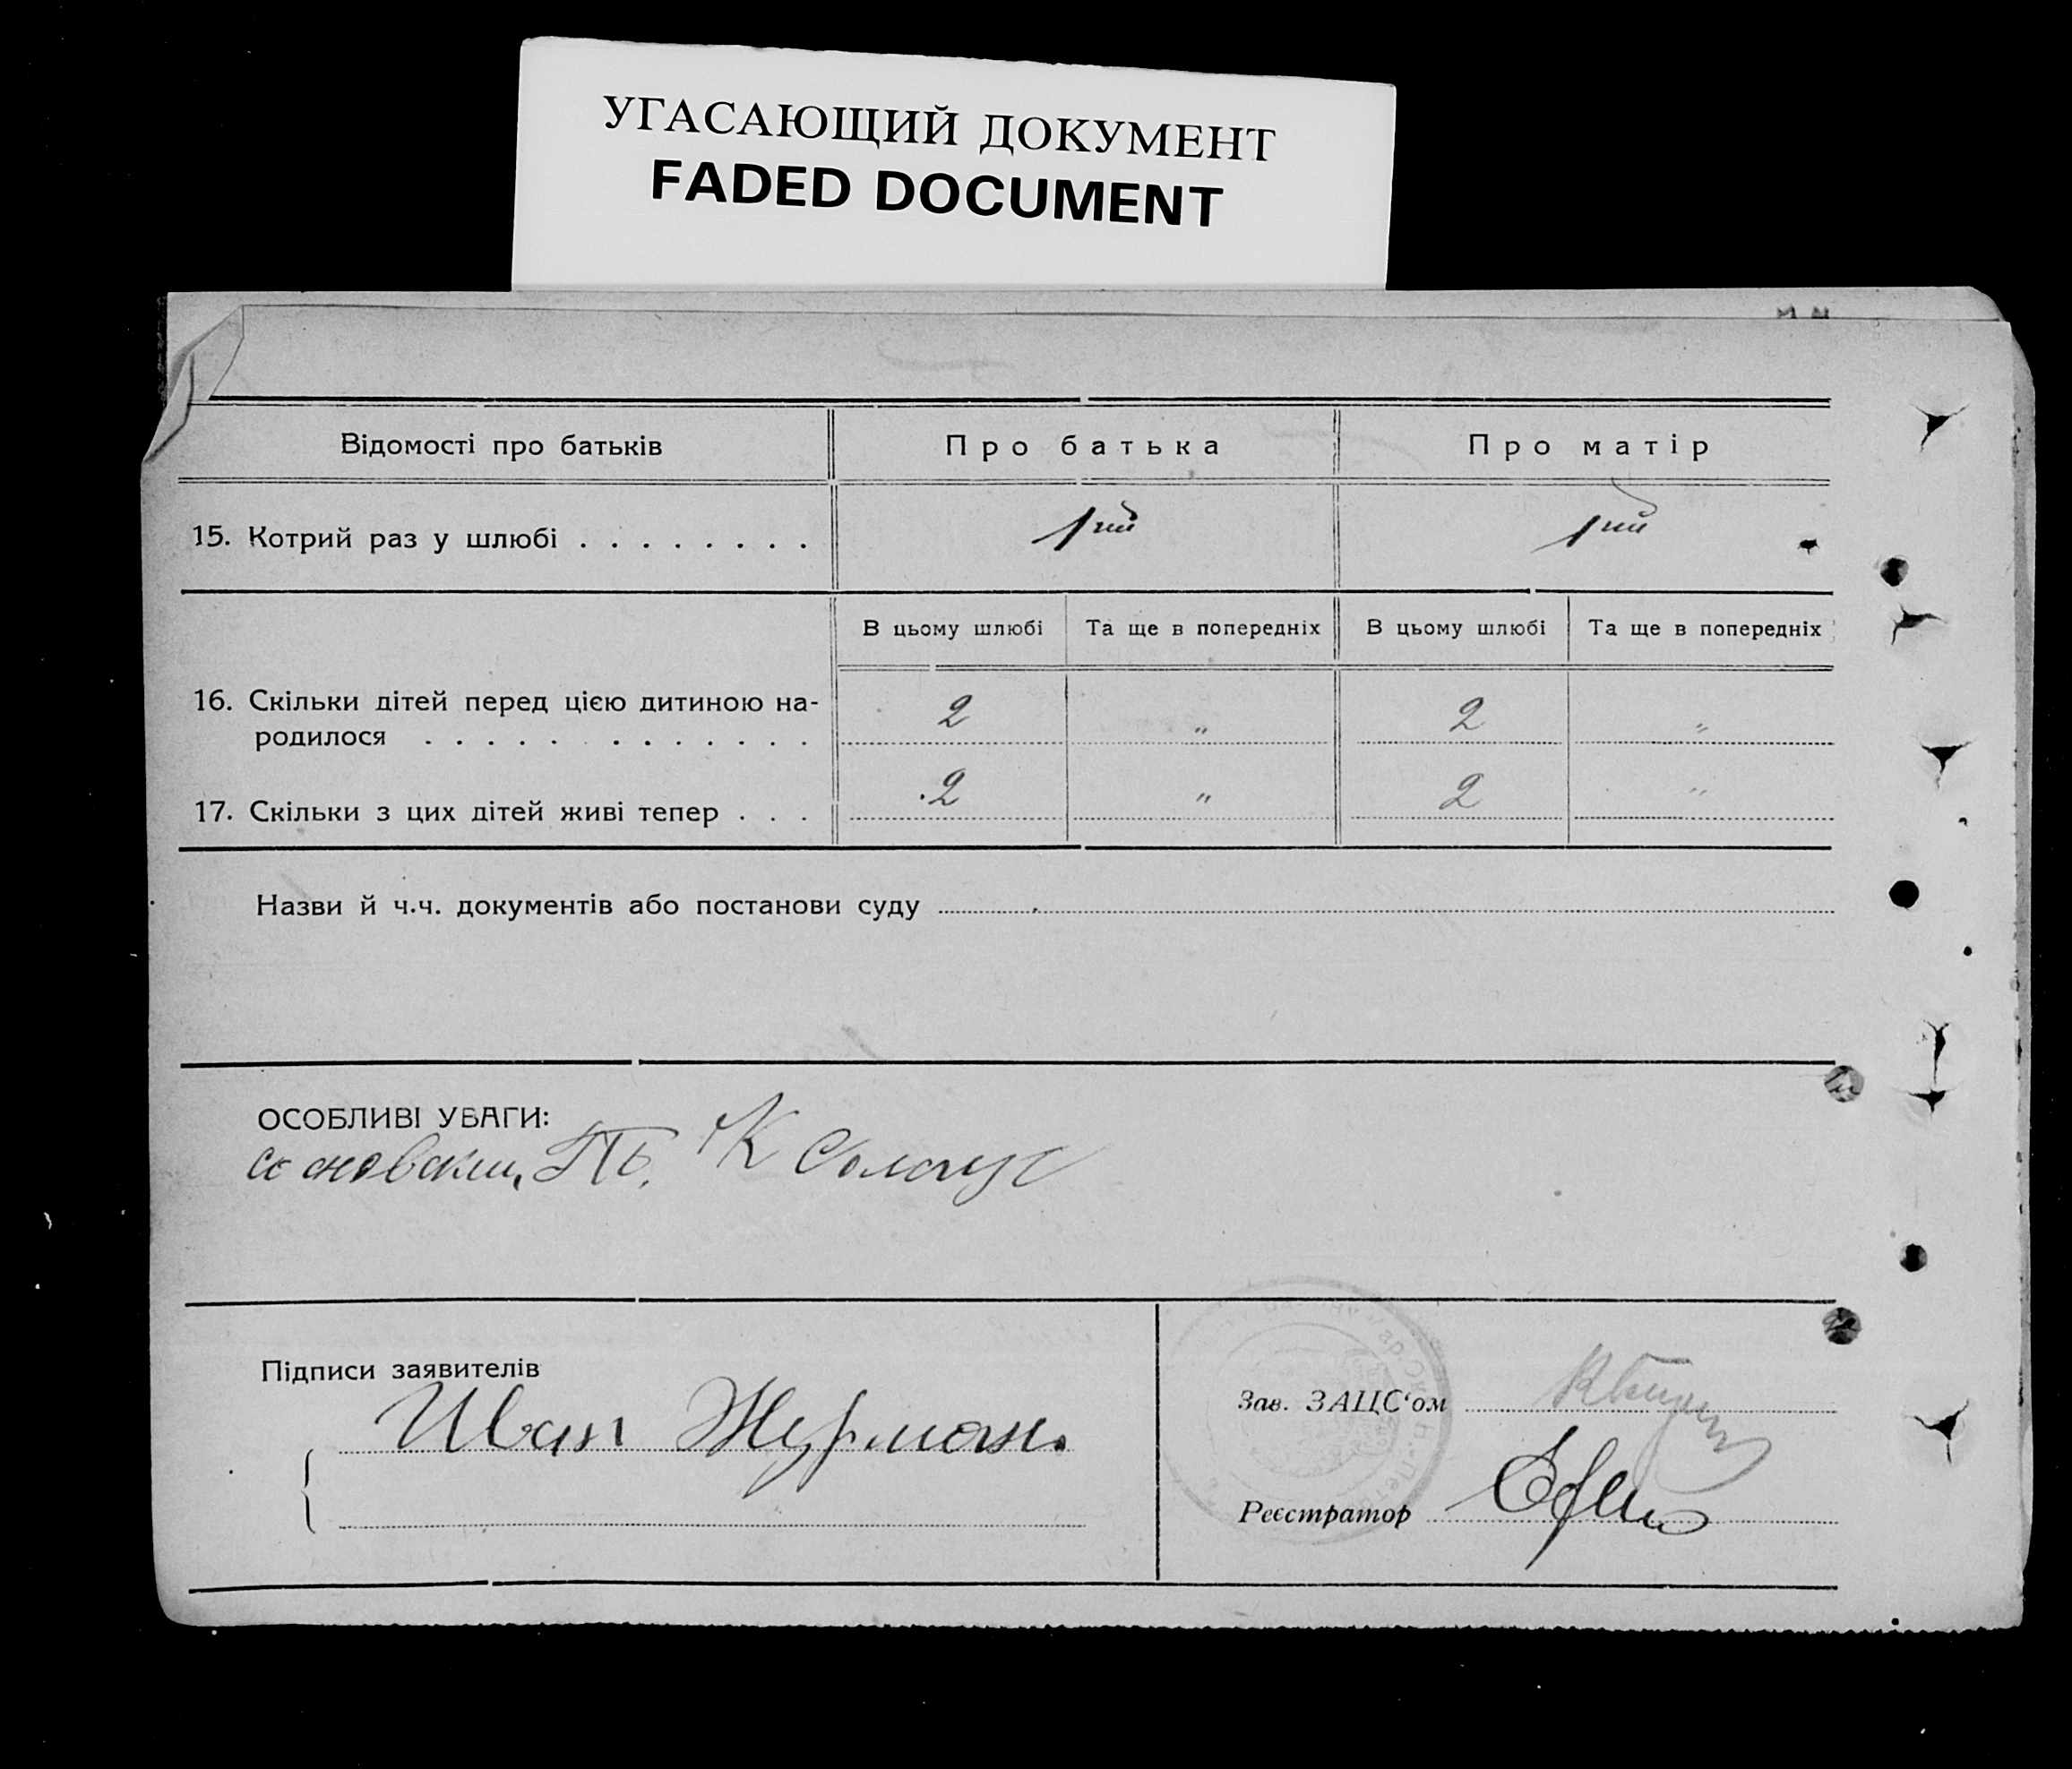 УГАСАЮЩИЙ ДОКУМЕНТ
FADED DOCUMENT
Відомості про батьків
Про батька
Про матір
15. Котрий раз у шлюбі . . . . . . . .
1ий
1ий
В цьому шлюбі
Та ще в попередніх
В цьому шлюбі
Та ще в попередніх
16. Скільки дітей перед цією дитиною на-
родилося . . . . . . . . . . . . .
2
"
2
"
17. Скільки з цих дітей живі тепер . . .
2
"
2
"
Назви й ч.ч. документів або постанови суду
ОСОБЛИВІ УВАГИ:
К
Підписи заявителів
Иван Журман.
Зав. ЗАЦС‘ом
Реєстратор